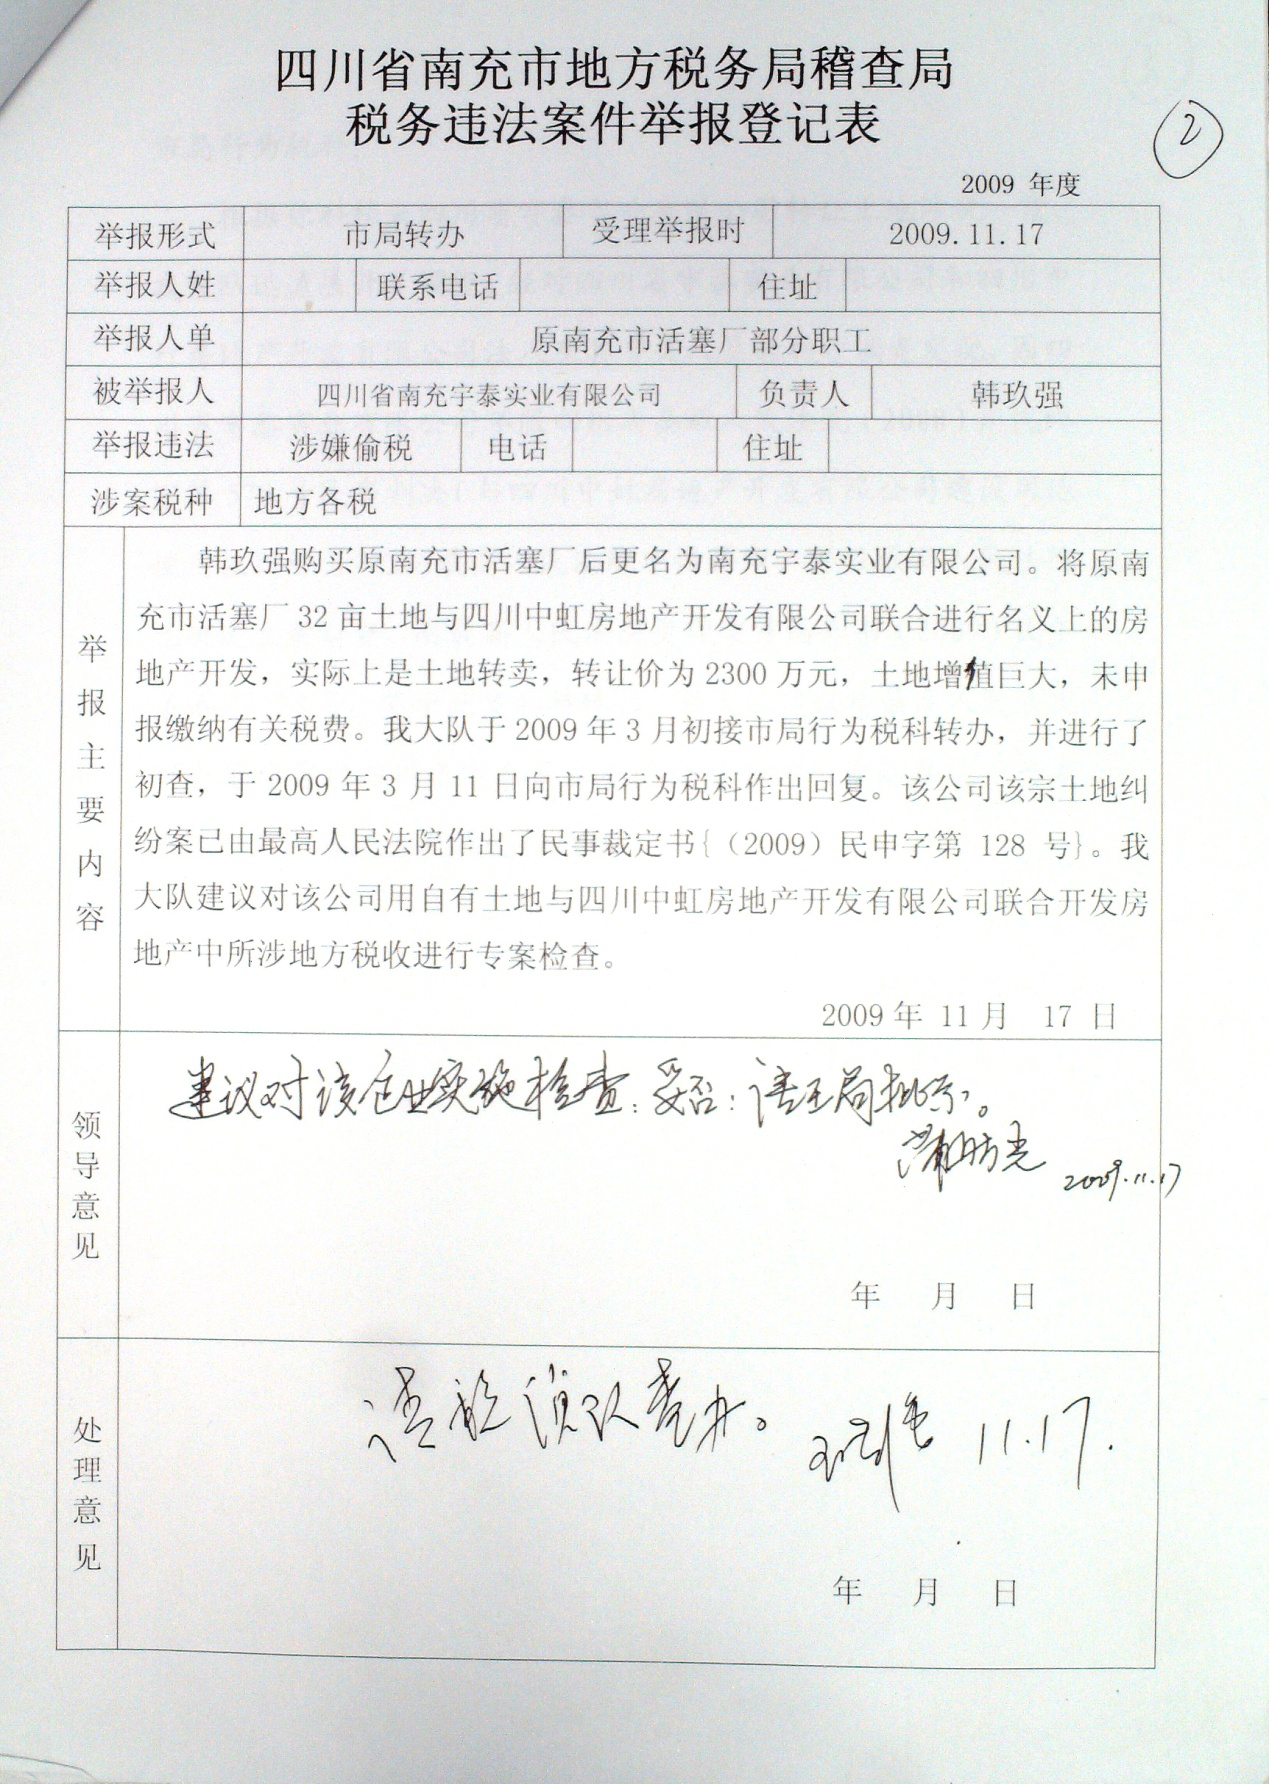 四川省南充市地方税务局稽查局
税务违法案件举报登记表
2
2009 年度
举报形式 市局转办 受理举报时 2009.11.17
举报人姓 联系电话 住址
举报人单 原南充市活塞厂部分职工
被举报人 四川省南充宇泰实业有限公司 负责人 韩玖强
举报违法 涉嫌偷税 电话 住址
涉案税种 地方各税
举报主要内容
韩玖强购买原南充市活塞厂后更名为南充宇泰实业有限公司。将原南
充市活塞厂 32 亩土地与四川中虹房地产开发有限公司联合进行名义上的房
地产开发，实际上是土地转卖，转让价为 2300 万元，土地增值巨大，未申
报缴纳有关税费。我大队于 2009 年 3 月初接市局行为税科转办，并进行了
初查，于 2009 年 3 月 11 日向市局行为税科作出回复。该公司该宗土地纠
纷案已由最高人民法院作出了民事裁定书{（2009）民申字第 128 号}。我
大队建议对该公司用自有土地与四川中虹房地产开发有限公司联合开发房
地产中所涉地方税收进行专案检查。
2009 年 11 月 17 日
领导意见
建议对该企业实施检查，妥否：请王局批示。
2009.11.17
年 月 日
处理意见
请税侦队查办。
11.17.
年 月 日